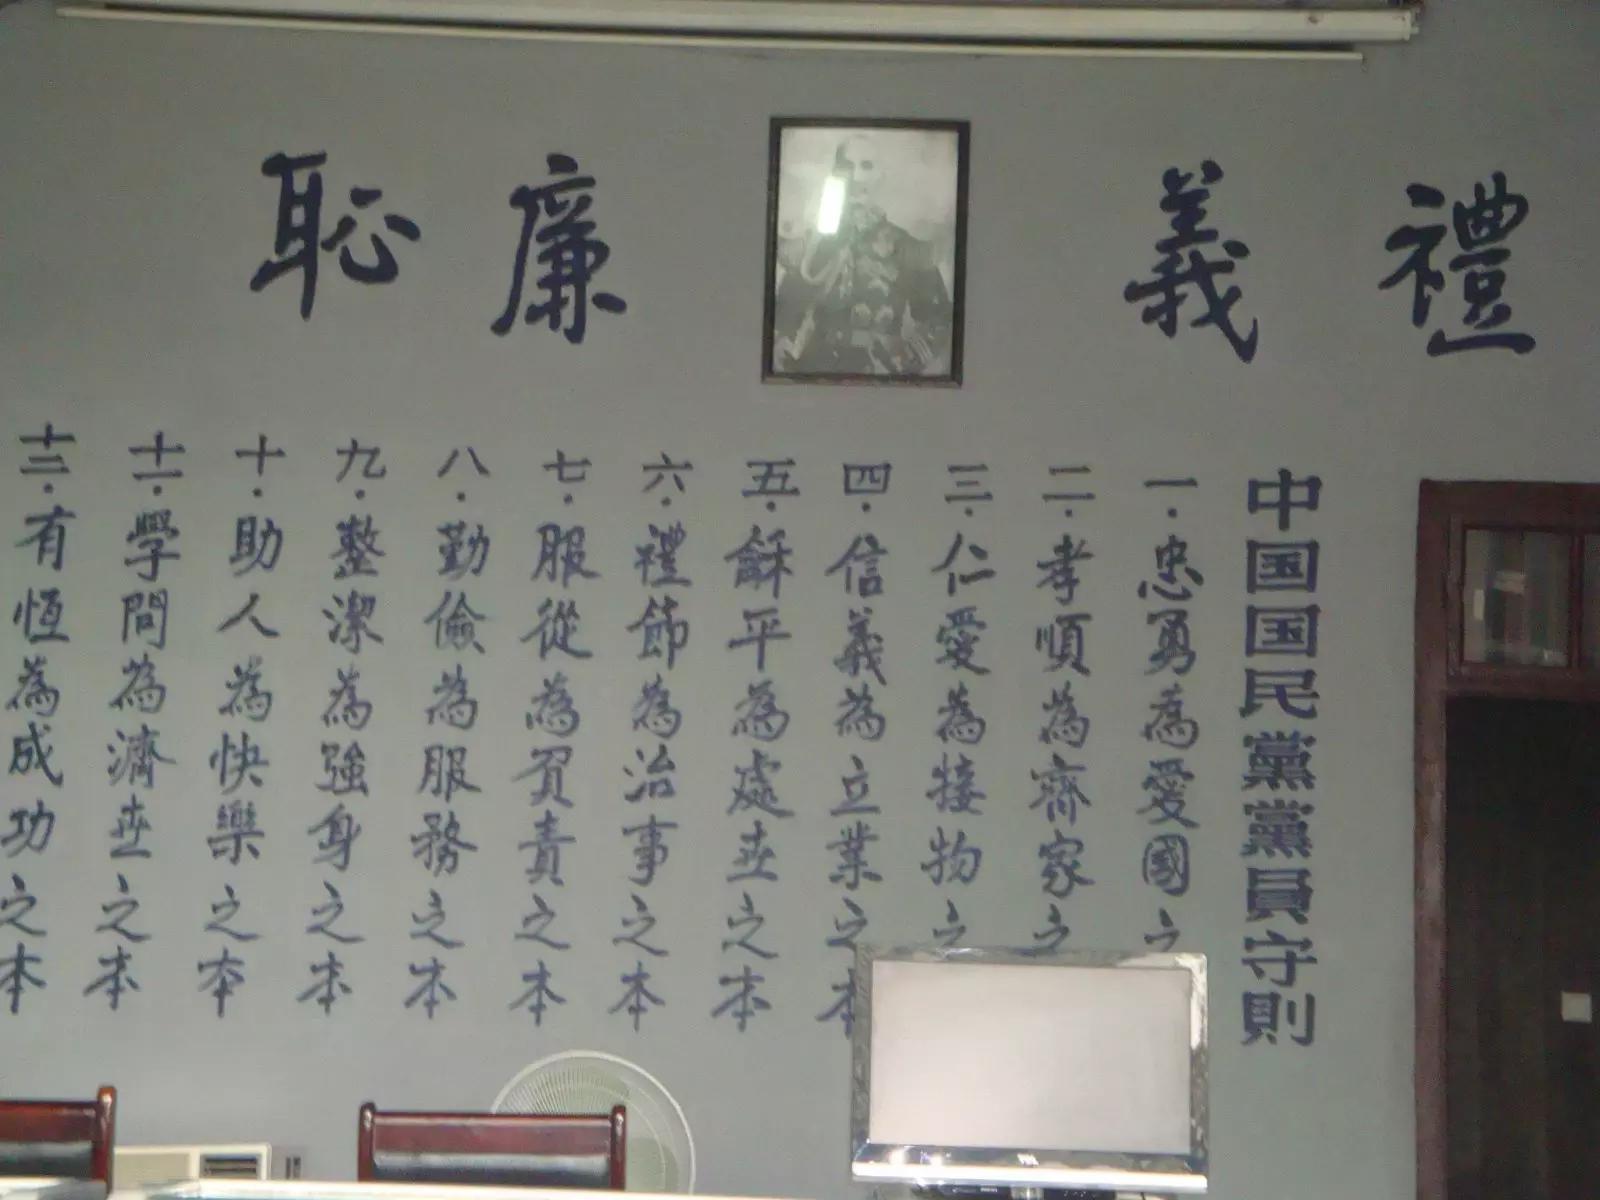 禮義廉恥
中国国民黨黨員守則
一．忠勇為愛國之
二．孝順為齊家之
三．仁愛為接物之
四．信義為立業之本
五．龢平為處世之本
六．禮節為治事之本
七．服從為負責之本
八．勤儉為服務之本
九．整潔為強身之本
十．助人為快樂之本
十一．學問為濟世之本
十二．有恆為成功之本